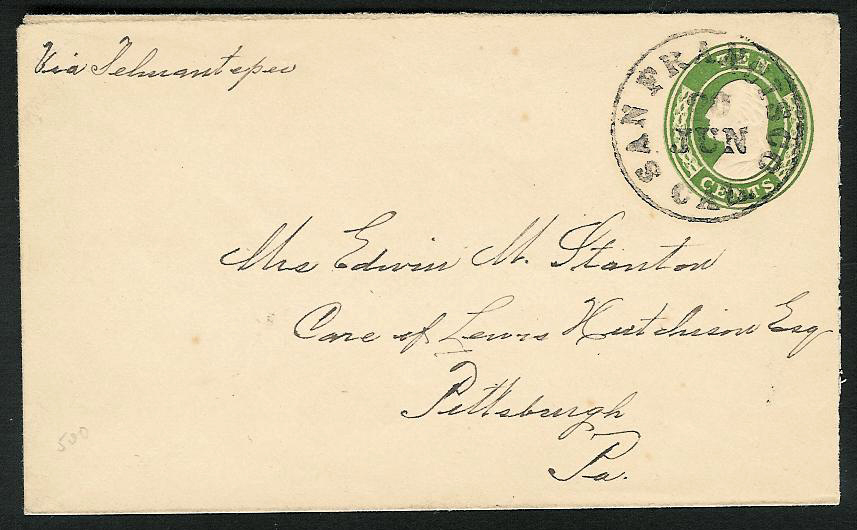 Via Tehuantepec
TEN
CENTS
SAN FRANCISCO CAL
20
JUN
Mrs Edwin M. Stanton
Care of Lewis Hutchison Esq
Pittsburgh
Pa.
500